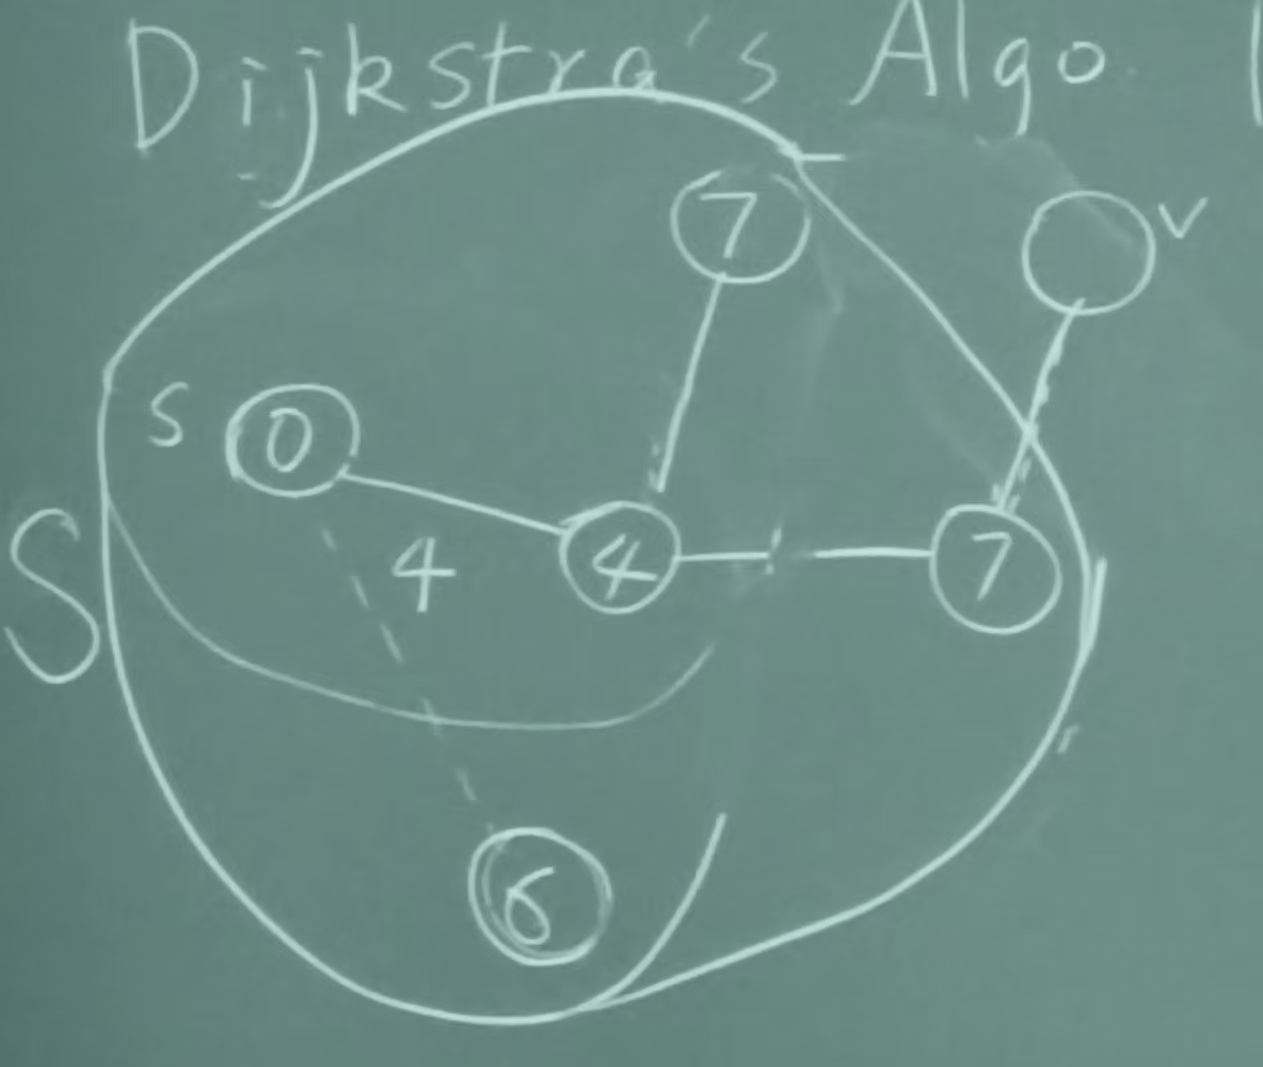 Dijkstra's Algo
7
v
s 0
S
4
4
7
6